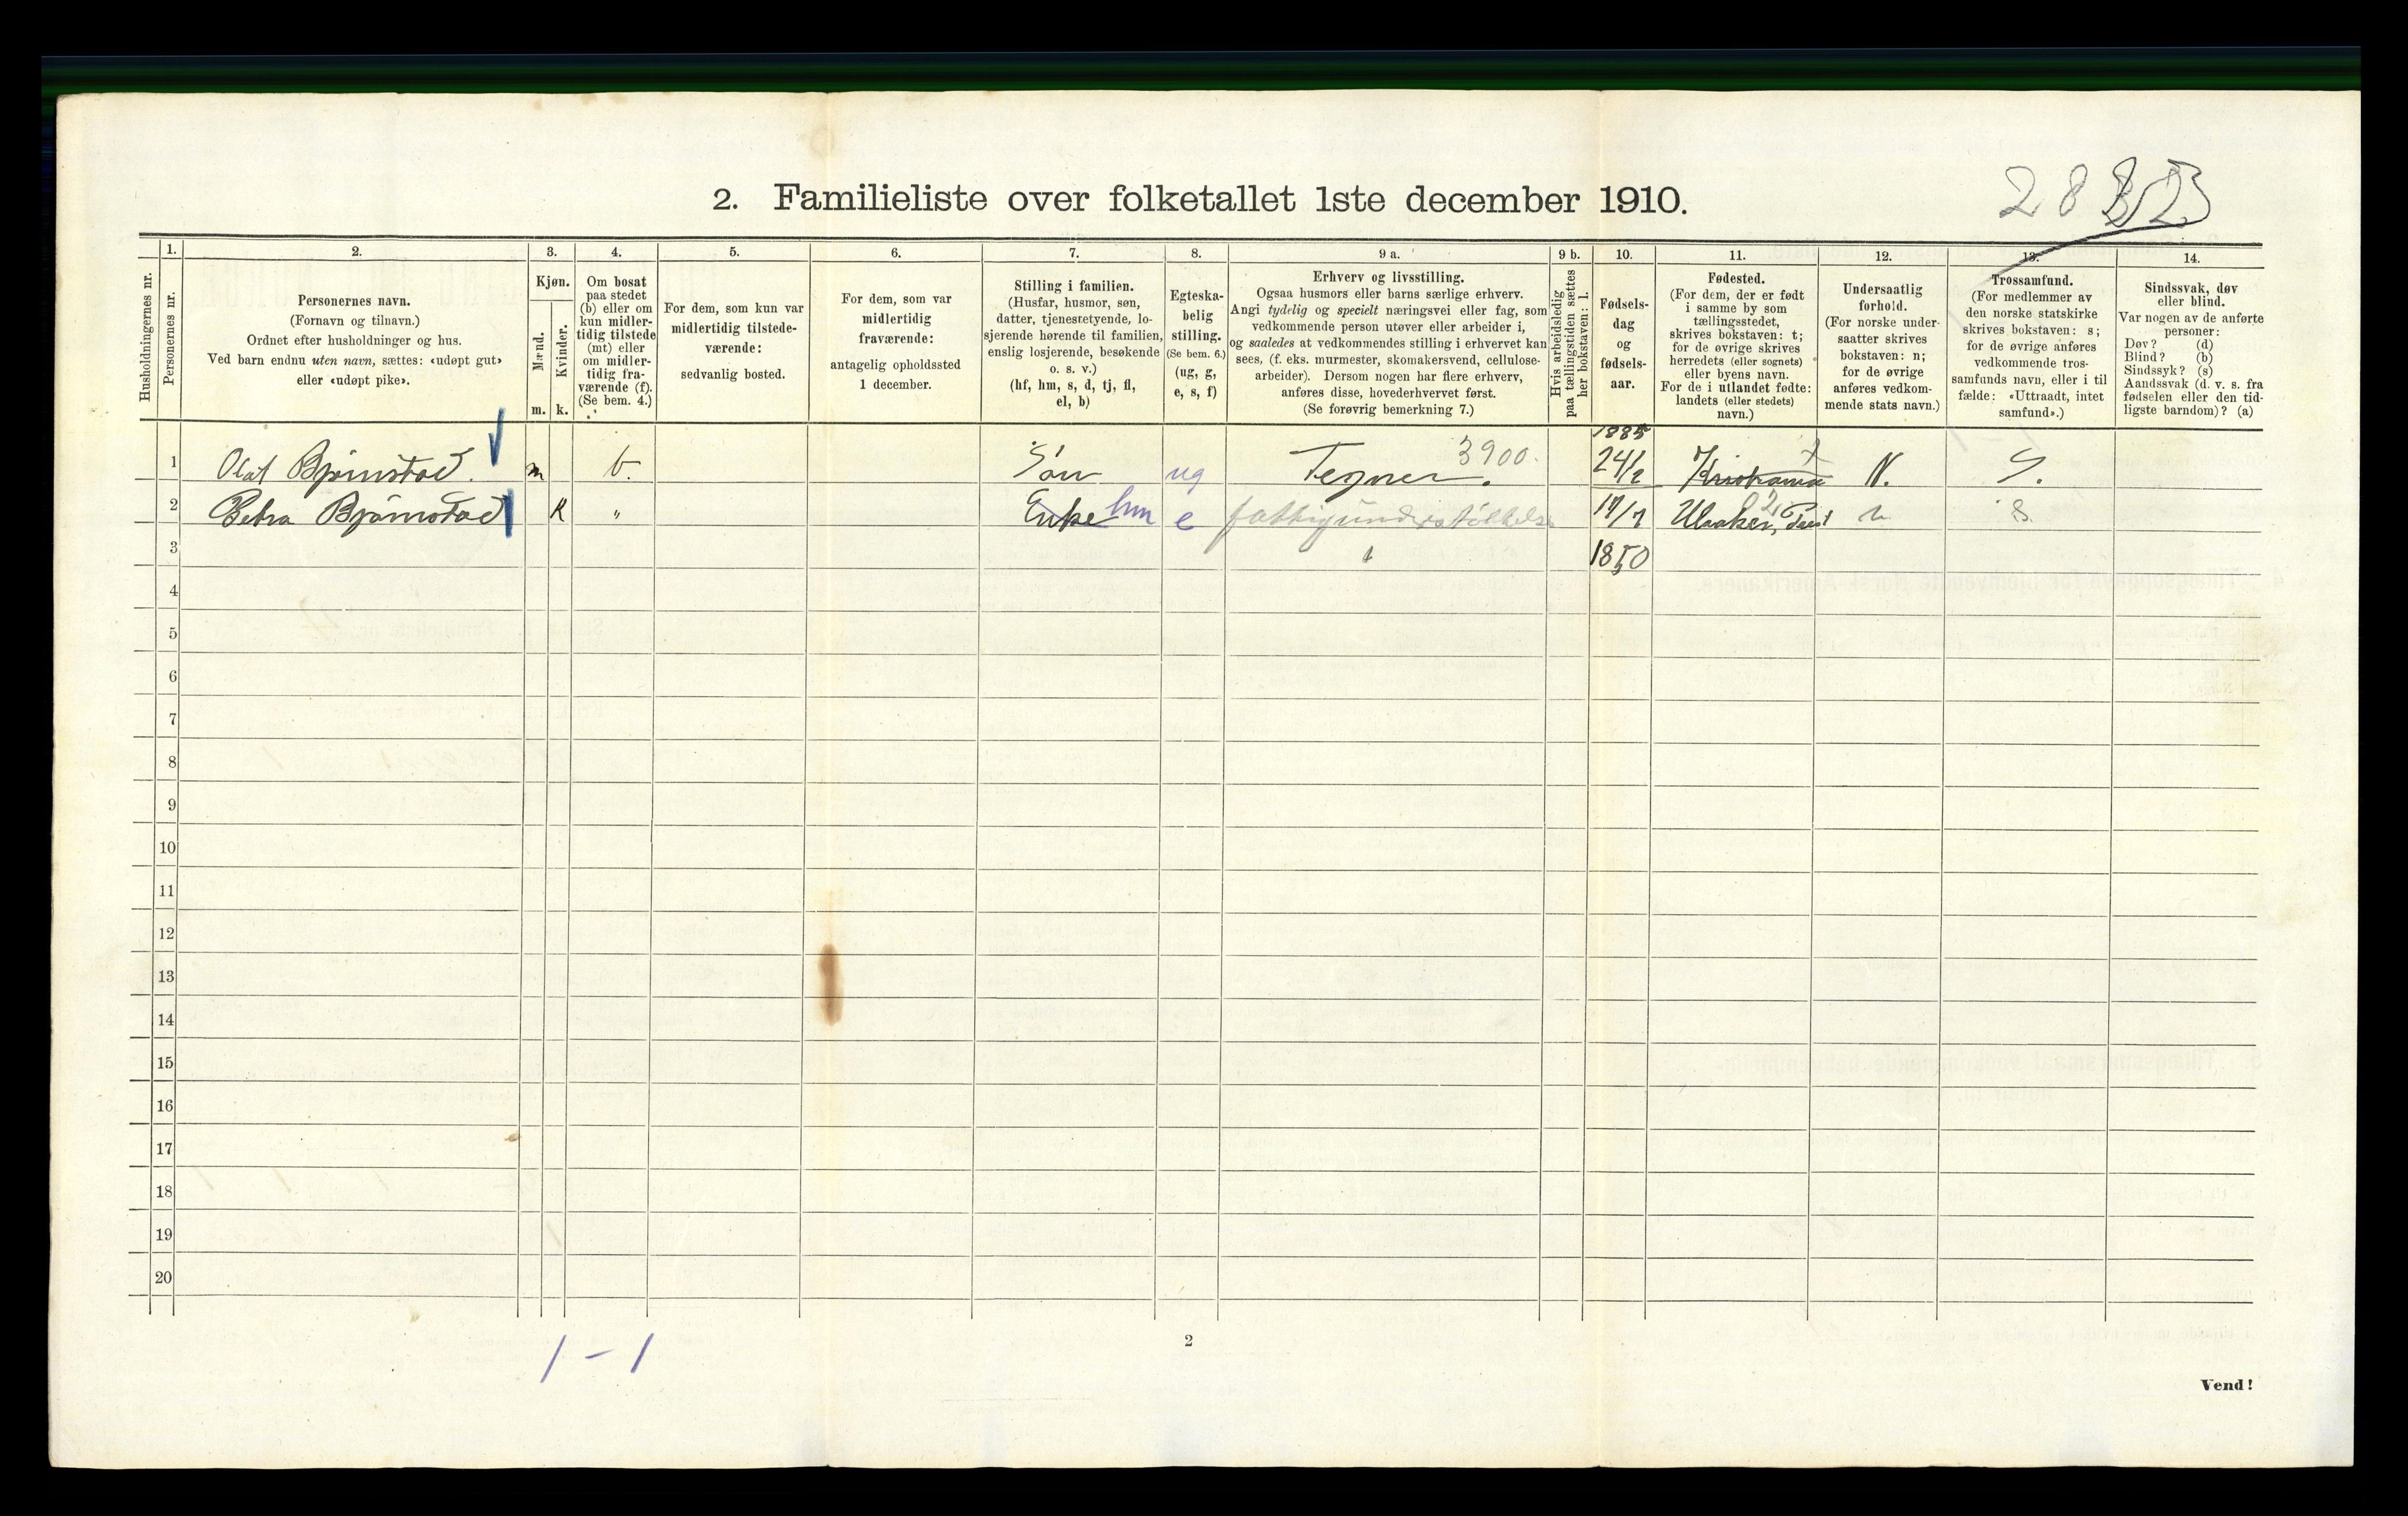 2. Familieliste over folketallet 1ste december 1910.
28
1. 2. 3. 4. 5. 6. 7. 8. 9 a. 9 b. 10. 11. 12. 13. 14.
Husholdningernes nr.
Personernes nr.
Personernes navn.
(Fornavn og tilnavn.)
Ordnet efter husholdninger og hus.
Ved barn endnu uten navn, sættes: «udøpt gut»
eller «udøpt pike».
Kjøn.
Mænd.
Kvinder.
m. k.
Om bosat
paa stedet
(b) eller om
kun midler-
tidig tilstede
(mt) eller
om midler-
tidig fra-
værende (f).
(Se bem. 4.)
For dem, som kun var
midlertidig tilstede-
værende:
sedvanlig bosted.
For dem, som var
midlertidig
fraværende:
antagelig opholdssted
1 december.
Stilling i familien.
(Husfar, husmor, søn,
datter, tjenesretyende, lo-
sjerende hørende til familien,
enslig losjerende, besøkende
o. s. v.)
(hf, hm, s, d, tj, fl,
el, b)
Egteska-
belig
stilling.
(Se bem. 6.)
(ug, g,
e, s, f)
Erhverv og livsstilling.
Ogsaa husmors eller barns særlige erhverv.
Angi tydelig og specielt næringsvei eller fag, som
vedkommende person utøver eller arbeider i,
og saaledes at vedkommendes stilling i erhvervet kan
sees, (f. eks. murmester, skomakersvend, cellulose-
arbeider). Dersom nogen har flere erhverv,
anføres disse, hovederhvervet først.
(Se forøvrig bemerkning 7.)
Hvis arbeidsledig
paa tællingstiden sættes
her bokstaven: l.
Fødsels-
dag
og
fødsels-
aar.
Fødested.
(For dem, der er født
i samme by som
tællingsstedet,
skrives bokstaven: t;
for de øvrige skrives
herredets (eller sognets)
eller byens navn.
For de i utlandet fødte:
landets (eller stedets)
navn.)
Undersaatlig
forhold.
(For norske under-
saatter skrives
bokstaven: n;
for de øvrige
anføres vedkom-
mende stats navn.)
Trossamfund.
(For medlemmer av
den norske statskirke
skrives bokstaven: s;
for de øvrige anføres
vedkommende tros-
samfunds navn, eller i til
fælde: «Uttraadt, intet
samfund».)
Sindssvak, døv
eller blind.
Var nogen av de anførte
personer:
Døv? (d)
Blind? (b)
Sindssyk? (s)
Aandssvak (d. v. s. fra
fødselen eller den tid-
ligste barndom)? (a)
1 Olaf Bjørnstad. m b. Søn ug Tegner. 3900. 1885 24/2 Kristiania t N. S.
2 Petra Bjørnstad K " Enke hm e fattigunderstøttelse 17/7 n S.
3 1850
4
5
6
7
8
9
10
11
12
13
14
15
16
17
18
19
20
1 – 1
2
Vend!